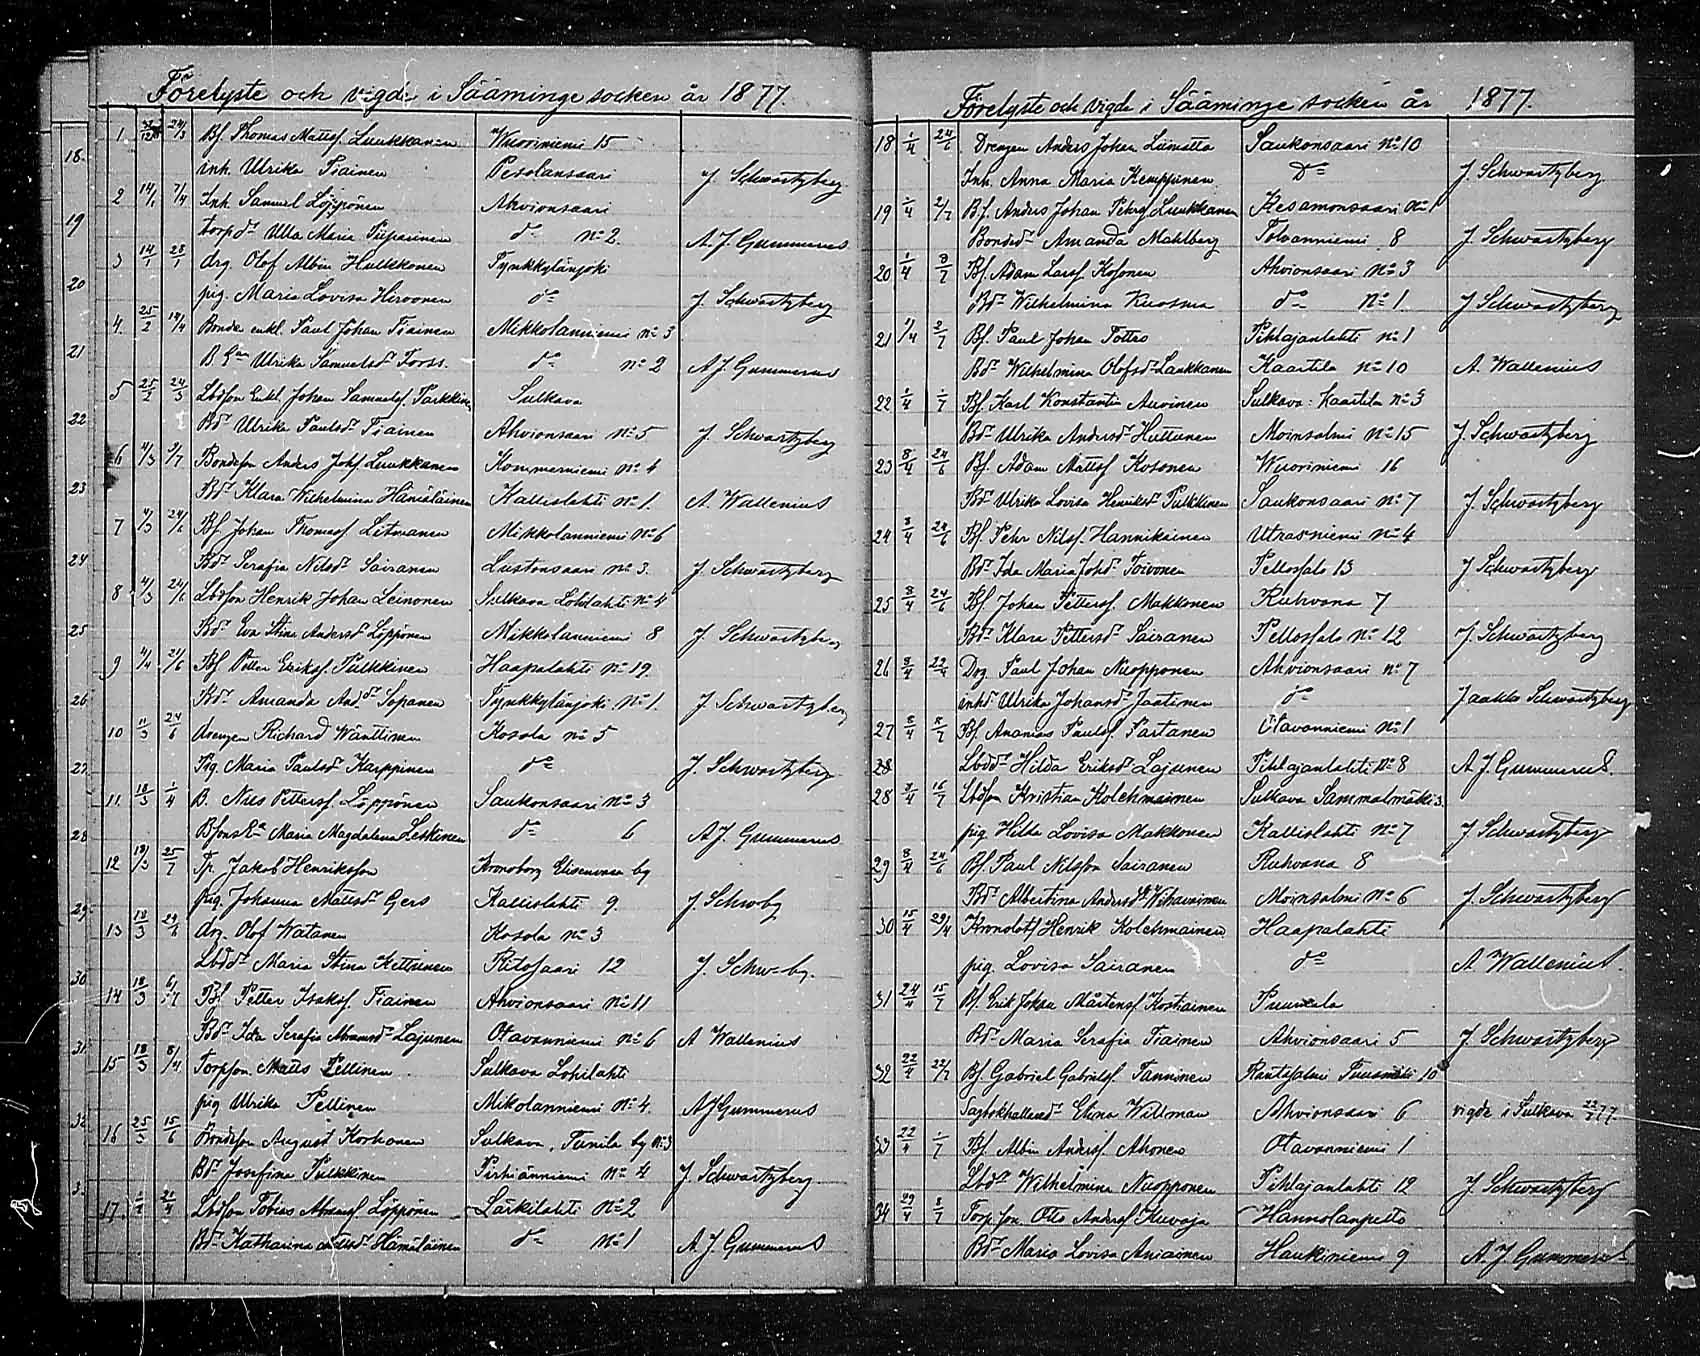 Förelyste och vigde i Sääminge socken år 1877.
1 24/3 Bf. Thomas Mattsf. Luukkanen Wuoriniemi 15
inh. Ulrika Tiainen Pesolansaari J. Schwartzberg
2 14/1 7/4 Inh. Samuel Löppönen Ahvionsaari
torp dr Ulla Maria Piiparinen do No 2. A. J. Gummerus
3 14/1 28/1 drg. Olof Albin Hulkkonen Tynkkylänjoki
pig. Maria Lovisa Hirvonen do J. Schwartzberg
4. 25/2 14/4 Bonde enkl. Paul Johan Tiainen Mikkolanniemi No 3
Ulrika Samuelsdr Torss. do No 2 A. J. Gummerus
5 25/2 24/3 Lbdson Enkl. Johan Samuelsf. Parkkinen Sulkava
Bdr Ulrika Paulsdr Tiainen Ahvionsaari No 5 J. Schwartzberg
6 4/3 Bondeson Anders Johsf. Luukkanen Kommerniemi No 4
Bdr Klara Wilhelmina Hämäläinen Kallislahti No 1. A. Wallenius
7 4/3 24/6 Bf. Johan Thomasf. Litmanen Mikkolanniemi No 6
Bdr Serafia Nilsdr Sairanen Lustonsaari No 3. J. Schwartzberg
8 4/3 24/6 Lbdson Henrik Johan Leinonen Sulkava Lohilahti No 4
Bdr Eva Stina Andersdr Löppönen Mikkolanniemi 8 J. Schwartzberg
9 4/4 Bf Petter Eriksf. Pulkkinen Haapalahti No 19.
Bdr Amanda And.dr Sopanen Tynkkylänjoki No 1. J. Schwartzberg
10 11/3 24/6 drengen Richard Wänttinen Kosola No 5
Pig. Maria Paulsdr Karppinen do J. Schwartzberg
11. 18/3 1/4 B. Nils Pettersf. Löppönen Saukonsaari No 3
Maria Magdalena Leskinen do 6 A. J. Gummerus
12 25/7 Jakob Henriksson Kronoborg by
pig. Johanna Mattsdr Gers Kallislahti 9. J. Schwbg
13 18/3 24/6 drg. Olof Watanen Kosola No 3
Lbddr Maria Stina Kettunen Ritosaari 12 J. Schw-bg.
14 18/3 Bf Petter Isaksf. Tiainen Ahvionsaari No 11
Bdr Ida Serafia Abramsdr Lajunen Otavanniemi No 6 A Wallenius
15 18/3 8/4 Torpson. Matts Pellinen Sulkava Lohilahti
pig Ulrika Pellinen Mikolanniemi No 4. A J Gummerus
16 25/3 15/6 Bondeson August Korhonen Sulkava, Tunila by No 3
Bdr Josefina Pulkkinen Pirhiänniemi No 4 J. Schwartzberg.
17. Lbdson Tobias Abramsf Löppönen Lärkilahti No 2
Bdr Katharina Hämäläinen do No 1 A. J. Gummerus
Förelyste och vigde i Sääminge socken år 1877.
18 1/4 24/6 Drengen Anders Johan Liimatta Saukonsaari No 10
Inh. Anna Maria Kemppinen Do J. Schwartzberg
19 1/4 2/7 Bf. Anders Johan Pehrsf Luukkanen Kesamonsaari No 1
Bondedr Amanda Mahlberg Tolvanniemi 8 J Schwartzberg
20 1/4 8/7 Bf. Adam Larsf. Kosonen Ahvionsaari No 3
Bdr Wilhelmina Kuosma do No 1. J Schwartzberg
21 1/4 2/7 Bf. Paul Johan Tottro Pihlajanlahti No 1
Bdr Wilhelmina Olofsdr Laukkanen Kaartila No 10 A. Wallenius
22 1/4 1/7 Bf. Karl Konstantin Auvinen Sulkava: Kaartila No 3
Bdr Ulrika Andersdr Huttunen Moinsalmi No 15 J. Schwartzberg
23 8/4 24/6 Bf. Adam Mattsf Kosonen Wuoriniemi 16
Bdr Ulrika Lovisa Henriksdr Pulkkinen Saukonsaari No 7 J. Schwartzberg
24 8/4 24/6 Bf. Pehr Nilsf. Hannikainen Utrasniemi No 4
Bdr Ida Maria Johdr Toivonen Pellossalo 13 J Schwartzberg
25 8/4 24/6 Bf. Johan Pettersf. Makkonen Ruhvana 7
Bdr Klara Pettersdr Sairanen Pellossalo No 12 J. Schwartzberg
26 8/4 Drg Paul Johan Nuopponen Ahvionsaari No 7
inhdr Ulrika Johansdr Jaatinen do Jaakko Schwartzberg
27 8/4 Bf. Ananias Paulsf. Partanen Otavanniemi No 1
Lbddr Hilda Eriksdr Lajunen Pihlajanlahti No 8 A J Gummerus.
28 8/4 16/7 Lbdson Kristian Kolehmainen Sulkava Sammalmäki 3.
pig Hilda Lovisa Makkonen Kallislahti No 7 J Schwartzberg
29 8/4 24/6 Bf. Paul Nilsson Sairanen Ruhvana 8
Bdr Albertina Andersdr Wihavainen Moinsalmi No 6 J. Schwartzberg
30 15/4 29/4 Kronolots Henrik Kolehmainen Haapalahti
pig. Lovisa Sairanen do A Wallenius.
31 15/7 Bf. Erik Johan Mårtensf. Kostiainen Puumala
Bdr Maria Serafia Tiainen Ahvionsaari 5 J Schwartzberg
32 22/4 22/7 Bf. Gabriel Gabrielsf. Tanninen Rantasalmi 10
Elina Willman Ahvionsaari 6 vigde i Sulkava 22/7 77.
33 22/4 1/7 Bf. Albin Andersf. Ahonen Otavanniemi 1
Lbdr Wilhelmina Nuopponen Pihlajanlahti 12 J Schwartzberg
34 29/4 8/7 Torp son Otto Andersf Kuvaja Hannolanpelto
Bdr Maria Lovisa Aniainen Haukiniemi 9 A. J. Gummerus